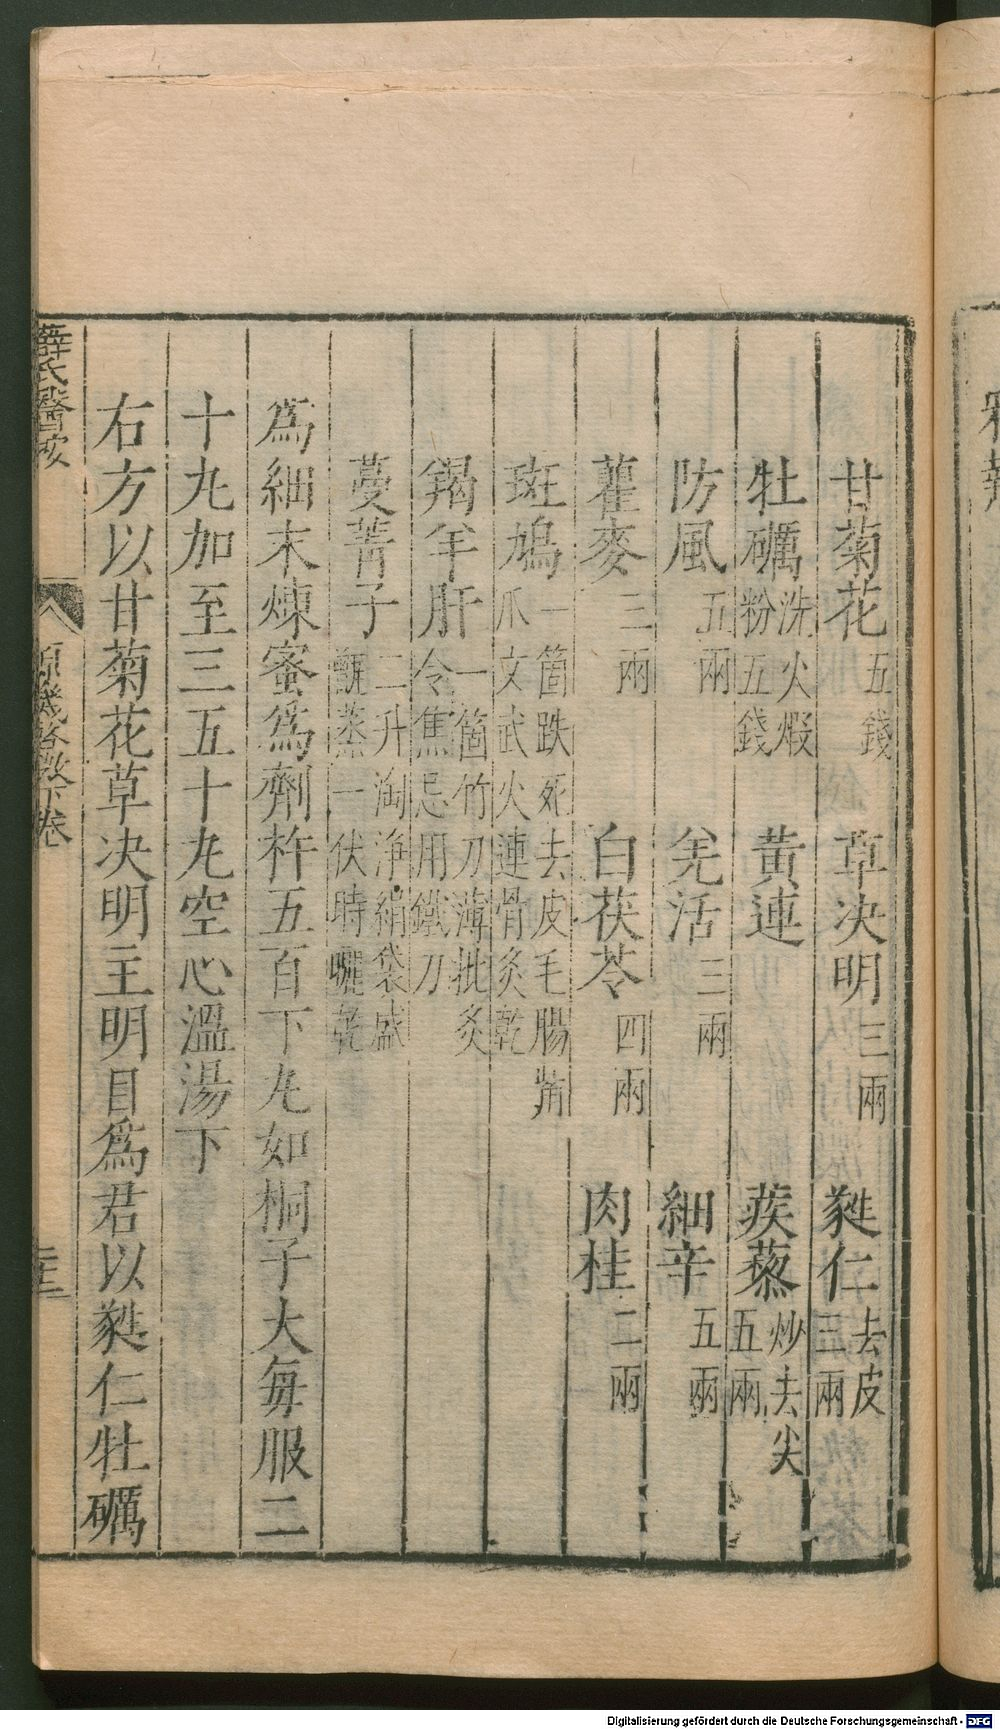 甘菊花五錢　草决明三兩　蕤仁去皮三兩
牡礪洗火煆粉五錢　黃連　蒺藜炒去尖五兩
防風五兩　羌活三兩　細辛五兩
蘿麥三兩　白茯苓四兩　肉桂二兩
斑鳩一箇跌死去皮毛腸觜爪文武火連骨炙乾
羯羊肝一箇竹刀薄批炙令焦忌用鐵刀
蔓菁子二升淘淨絹袋盛甑蒸一伏時曬乾
爲細末煉蜜爲劑杵五百下丸如桐子大每服二
十丸加至三五十丸空心溫湯下
右方以甘菊花草决明主明目爲君以蕤仁牡礪
薛氏醫按　原機啓微下卷
Digitalisierung gefördert durch die Deutsche Forschungsgemeinschaft - DFG